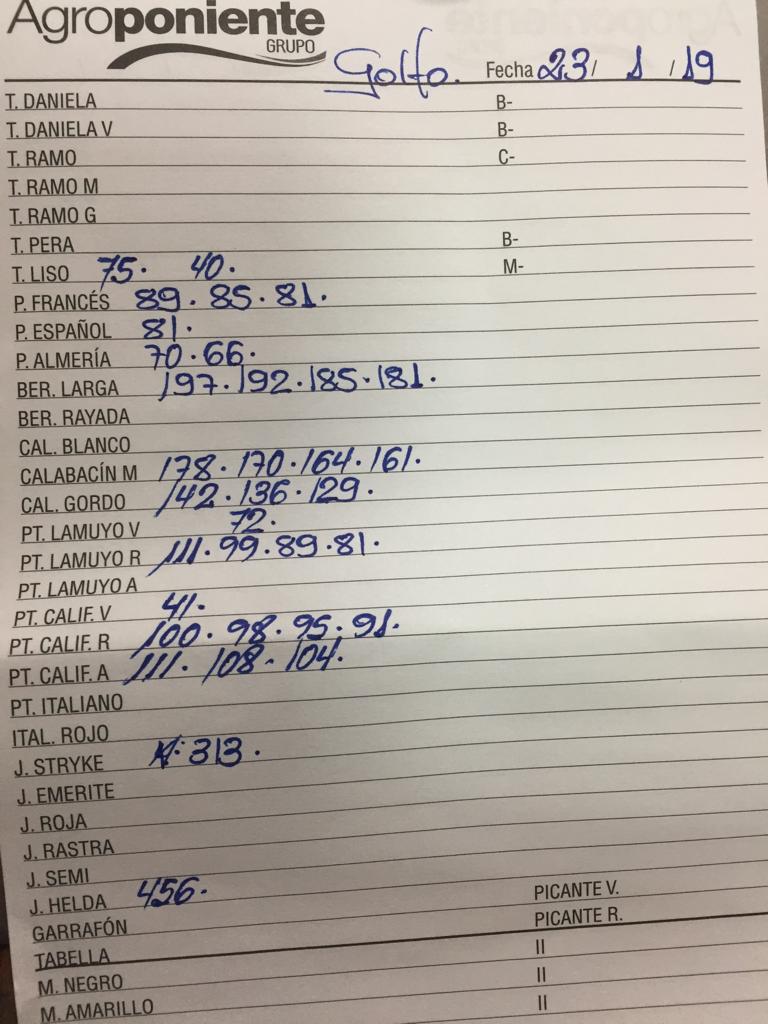 Agroponiente
GRUPO
Golfo. Fecha 23/ 1 /19
T. DANIELA B-
T. DANIELA V B-
T. RAMO C-
T. RAMO M
T. RAMO G
T. PERA B-
T. LISO 75. 40. M-
P. FRANCÉS 89. 85. 81.
P. ESPAÑOL 81.
P. ALMERÍA 70. 66.
BER. LARGA 197. 192. 185. 181.
BER. RAYADA
CAL. BLANCO
CALABACÍN M 178. 170. 164. 161.
CAL. GORDO 142. 136. 129.
PT. LAMUYO V 72.
PT. LAMUYO R 111. 99. 89. 81.
PT. LAMUYO A
PT. CALIF. V 41.
PT. CALIF. R 100. 98. 95. 91.
PT. CALIF. A 111. 108. 104.
PT. ITALIANO
ITAL. ROJO
J. STRYKE N: 313.
J. EMERITE
J. ROJA
J. RASTRA
J. SEMI
J. HELDA 456. PICANTE V.
GARRAFÓN PICANTE R.
TABELLA II
M. NEGRO II
M. AMARILLO II